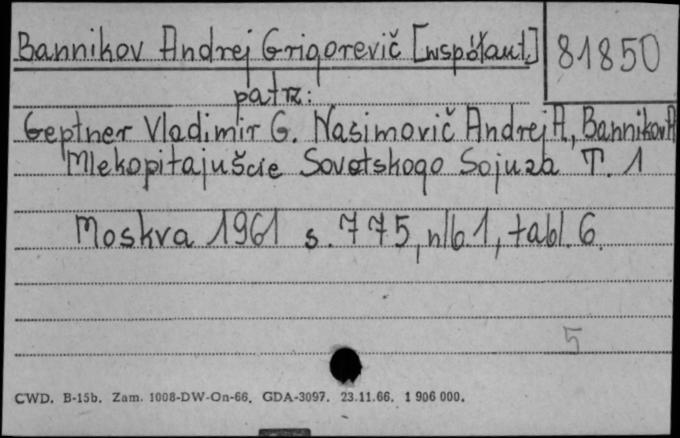 Bannikov Andrej Grigorevič [współaut.] 81850
patrz:
Geptner Vladimir G. Nasimovič Andrej A, Bannikov A
Mlekopitajuščie Sovetskogo Sojuza T. 1
Moskva 1961 s. 775, nlb. 1, tabl. 6.
5
CWD. B-15b. Zam. 1008-DW-On-66. GDA-3097. 23.11.66. 1 906 000.